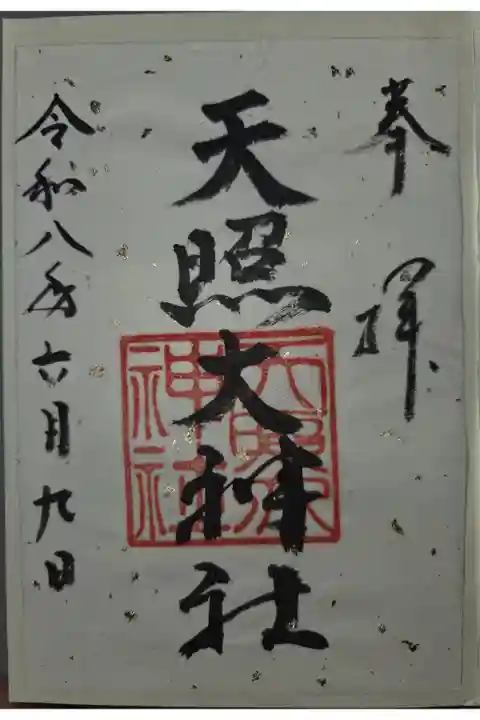 奉拝
天照大神社
天照
神社
令和八年六月九日